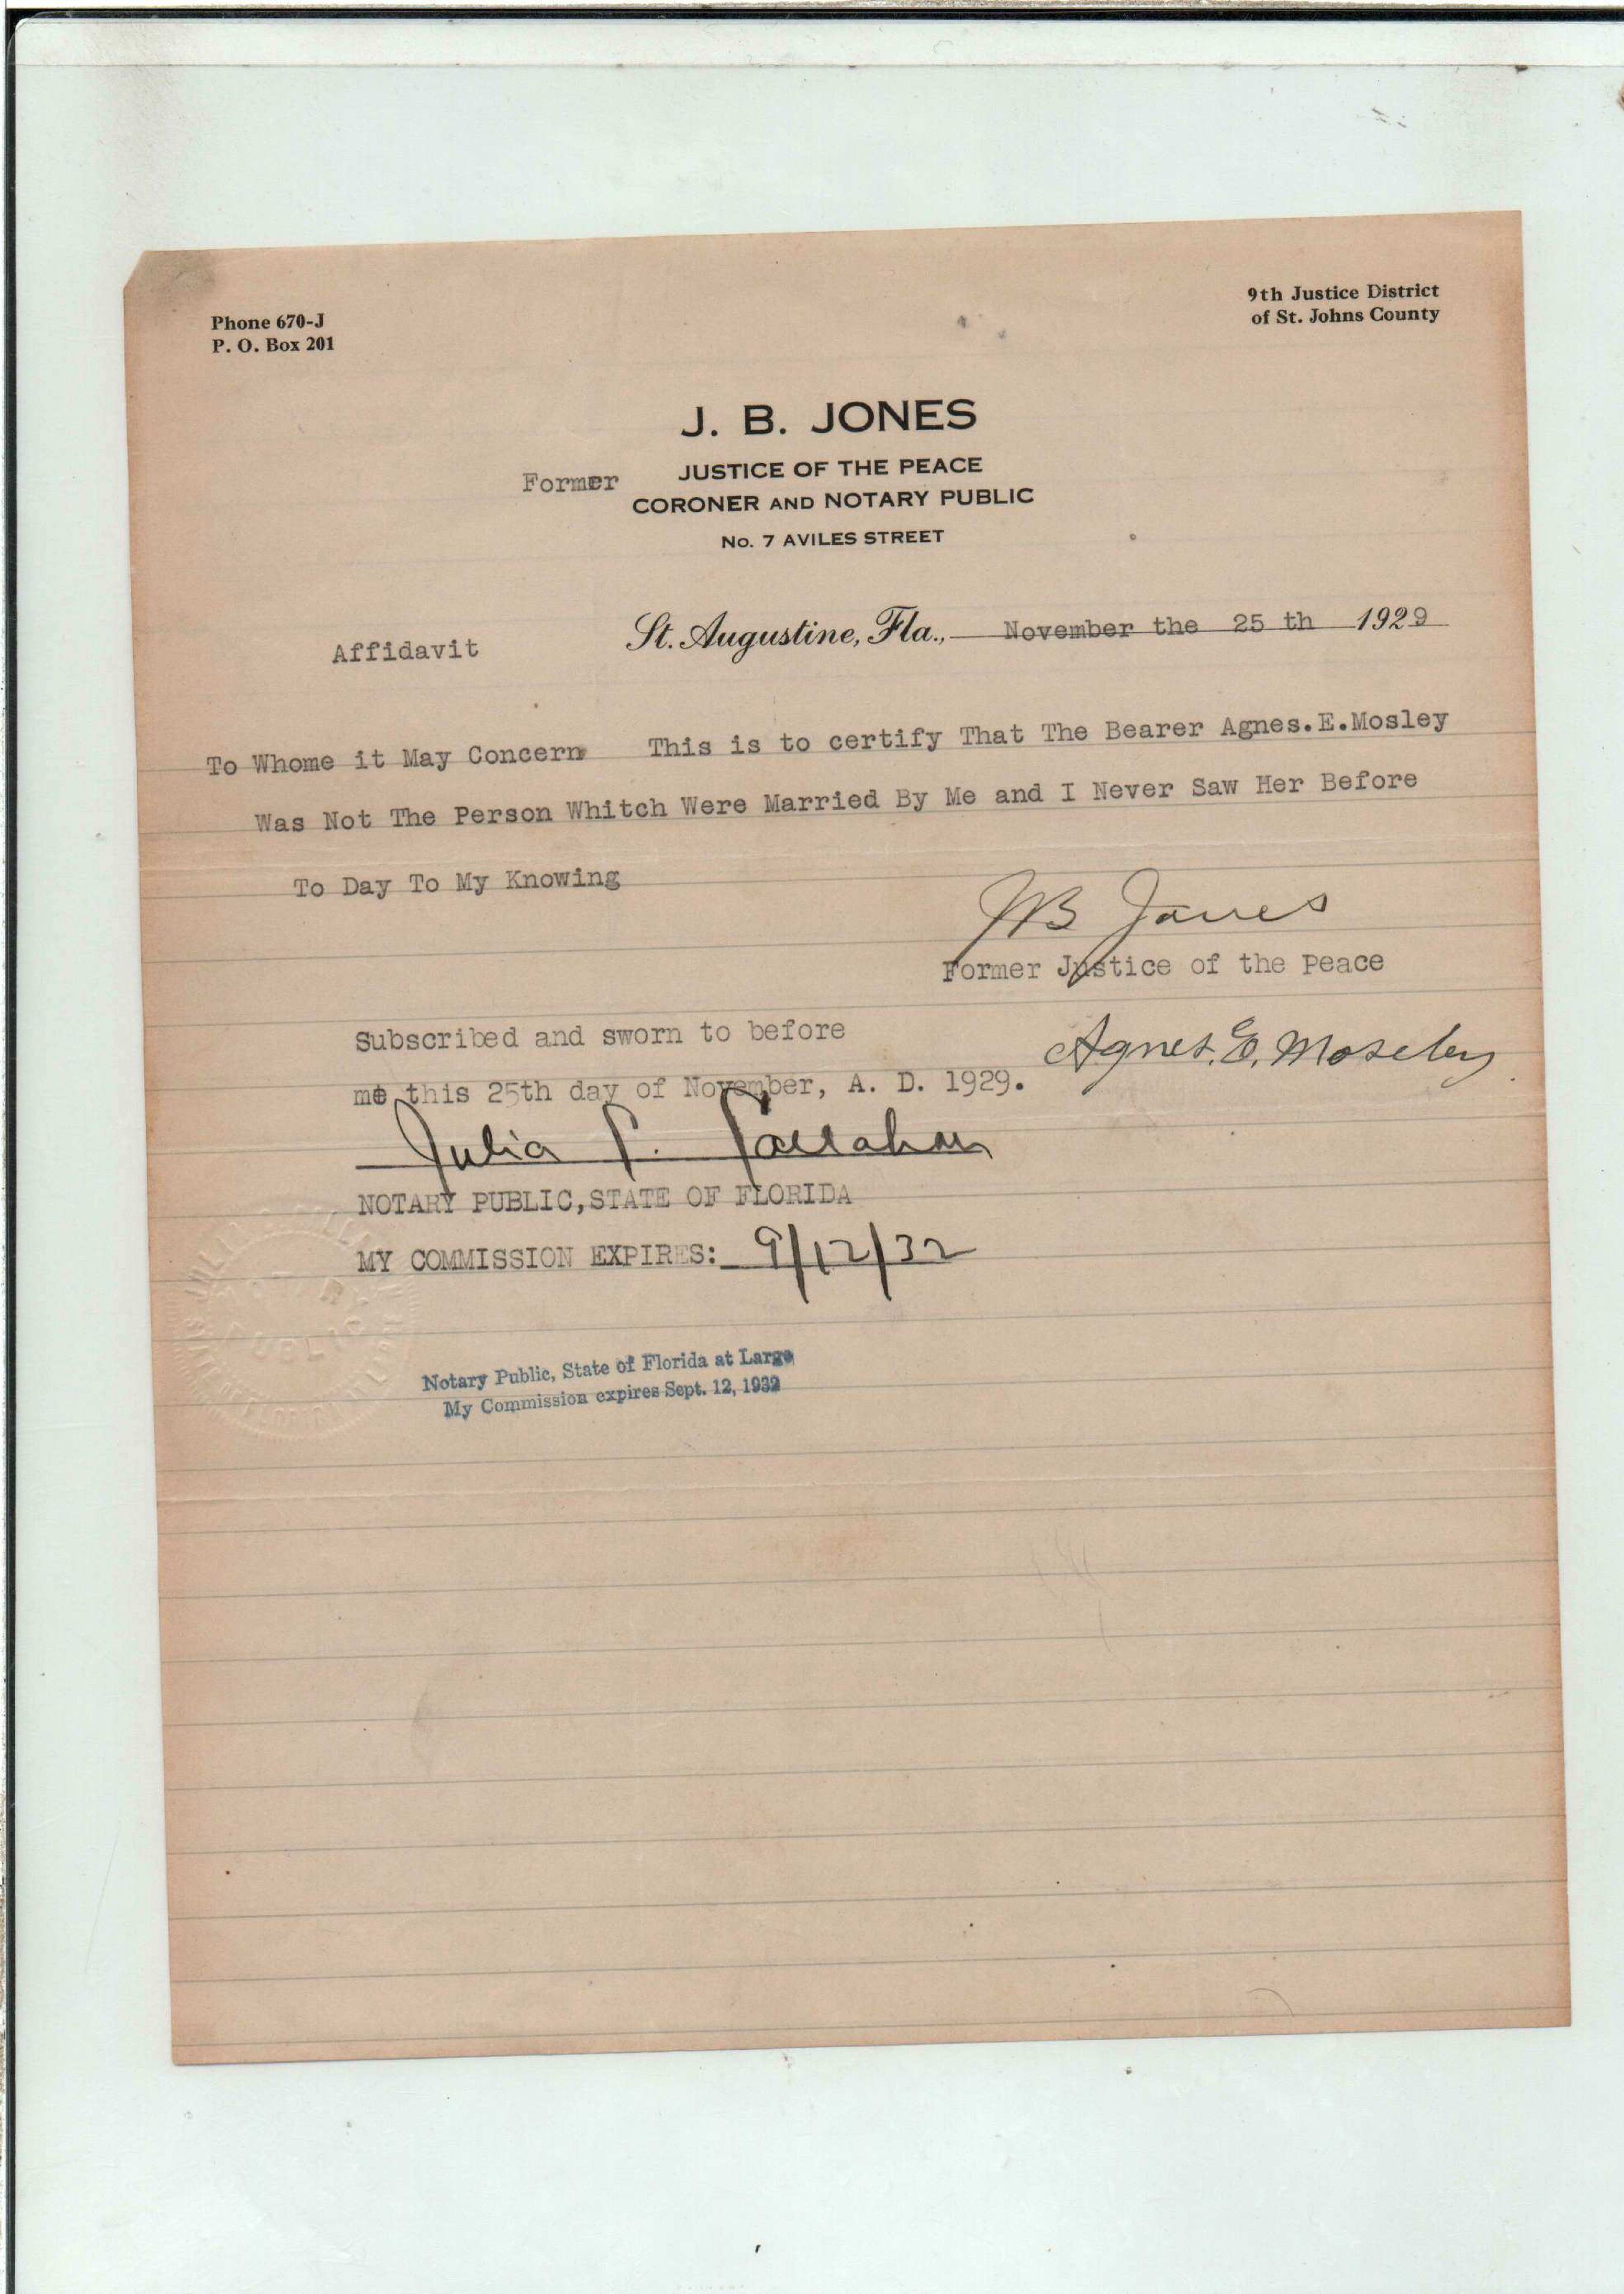 Phone 670-J
P. O. Box 201
9th Justice District
of St. Johns County
J. B. JONES
Former JUSTICE OF THE PEACE
CORONER AND NOTARY PUBLIC
No. 7 AVILES STREET
Affidavit
St. Augustine, Fla., November the 25 th 1929
To Whome it May Concern This is to certify That The Bearer Agnes.E.Mosley
Was Not The Person Whitch Were Married By Me and I Never Saw Her Before
To Day To My Knowing
JB Jones
Former Justice of the Peace
Subscribed and sworn to before
me this 25th day of November, A. D. 1929.
Agnes. E. Moseley
Julia
NOTARY PUBLIC, STATE OF FLORIDA
MY COMMISSION EXPIRES: 9/12/32
NOTARY
PUBLIC
Notary Public, State of Florida at Large
My Commission expires Sept. 12, 1932